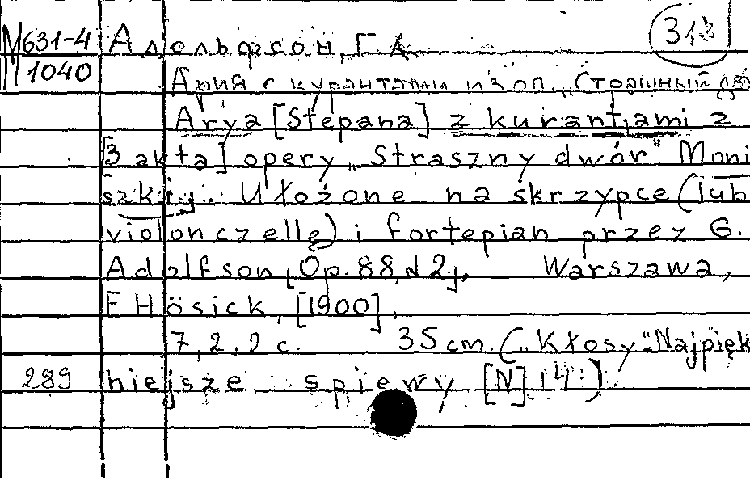 М631-4 Адельфсон, Г. А. 313
1040 Ария с курантами из оп. „Страшный дв
Arya [Stepana] z kurantjami z
[3 akta] opery „Straszny dwór" Moni
szki]. Ułożone na skrzypce (lub
violonczellę) i fortepian przez G.
Adelfson, Op. 88, N2], Warszawa,
F Hösick, [1900].
7, 2, 2 с. 35 cm. („Kłosy" Najpięk
289 niejsze spiewy [N] 14.)